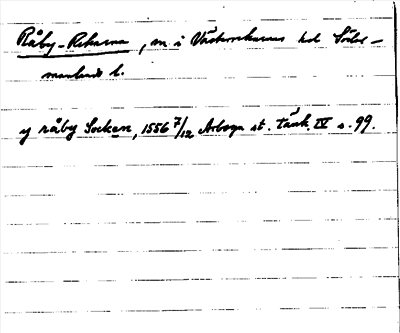 Råby-Rekarne, sn. i Västerrekarne hd Söder-
manlands l.
y råby Socken, 1556 7/12 Arboga st. tänk. IV s. 99.